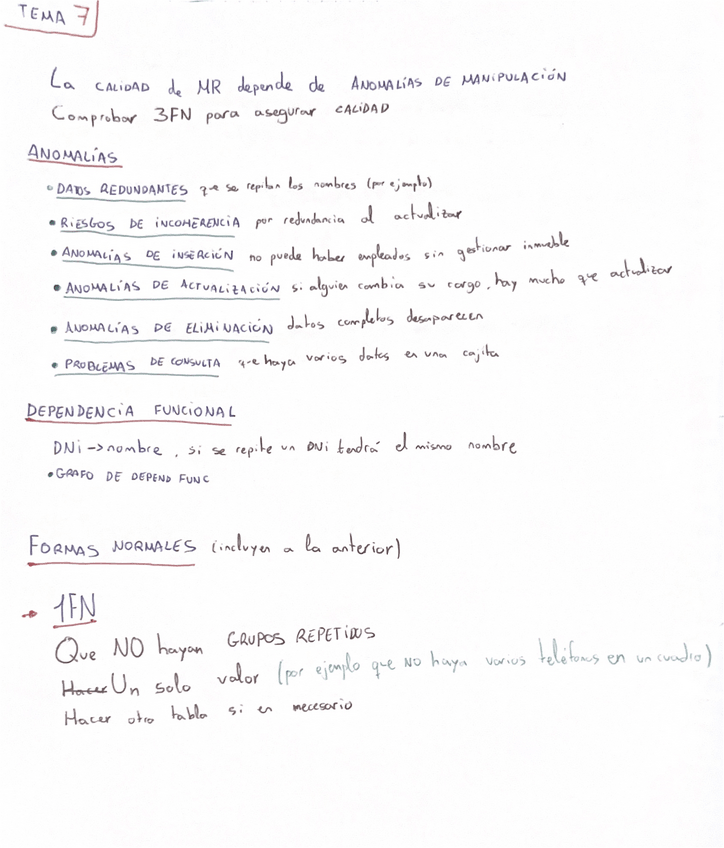 TEMA 7
La CALIDAD de MR depende de ANOMALÍAS DE MANIPULACIÓN
Comprobar 3FN para asegurar CALIDAD
ANOMALÍAS
• DATOS REDUNDANTES que se repitan los nombres (por ejemplo)
• RIESGOS DE INCOHERENCIA por redundancia al actualizar
• ANOMALÍAS DE INSERCIÓN no puede haber empleados sin gestionar inmueble
• ANOMALÍAS DE ACTUALIZACIÓN si alguien cambia su cargo, hay mucho que actualizar
• ANOMALÍAS DE ELIMINACIÓN datos completos desaparecen
• PROBLEMAS DE CONSULTA que haya varios datos en una cajita
DEPENDENCIA FUNCIONAL
DNi -> nombre, si se repite un DNi tendrá el mismo nombre
• GRAFO DE DEPEND FUNC
FORMAS NORMALES (incluyen a la anterior)
→ 1FN
Que NO hayan GRUPOS REPETIDOS
Hacer Un solo valor (por ejemplo que NO haya varios teléfonos en un cuadro)
Hacer otra tabla si en necesario